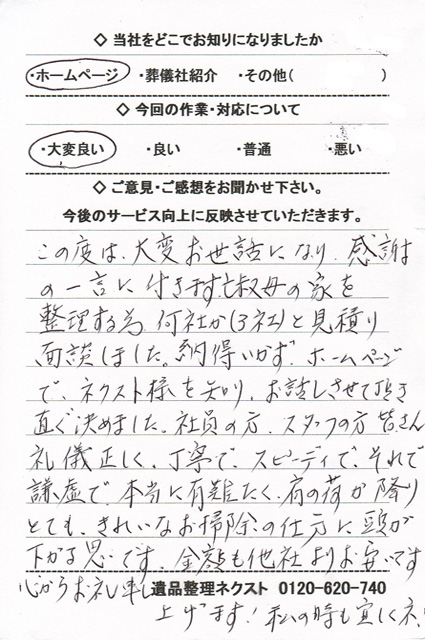 ◇ 当社をどこでお知りになりましたか
・ホームページ ・葬儀社紹介 ・その他( )
◇ 今回の作業・対応について
・大変良い ・良い ・普通 ・悪い
◇ ご意見・ご感想をお聞かせ下さい。
今後のサービス向上に反映させていただきます。
この度は、大変お世話になり、感謝
の一言に付きます。叔母の家を
整理する為、何社か(3社)と見積り
面談しました。納得いかず、ホームページ
で、ネクスト様を知り、お話しさせて頂き
直ぐ決めました。社員の方、スタッフの方皆さん
礼儀正しく、丁寧で、スピーディで、それで
謙虚で、本当に有難たく、肩の荷が降り
とても、きれいなお掃除の仕方に頭が
下がる思いです。金額も他社よりお安いです
心からお礼申し
遺品整理ネクスト 0120-620-740
上げます!私の時も宜しくネ!